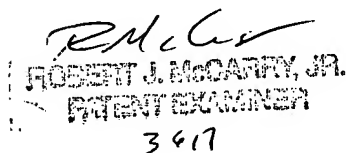 ROBERT J. McCARRY, JR.
PATENT EXAMINER
3617